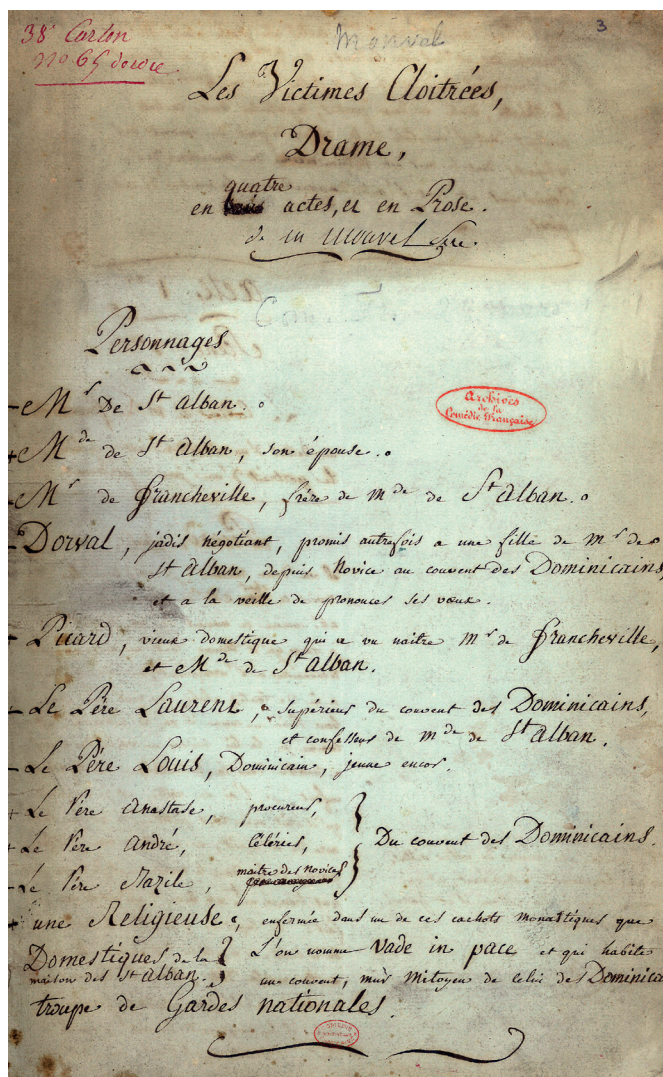 38e Carton
no 65
Monval
3
Les Victimes Cloitrées,
Drame,
quatre
en actes, et en Prose.
de
Personnages
Archives
de la
Comédie Française
Mr De St Alban.
Mde de St Alban, son épouse.
Mr de Francheville, frère de mde de St Alban.
Dorval, jadis négotiant, promis autrefois a une fille de mr de
St Alban, depuis Novice au couvent des Dominicains,
et a la veille de prononcer ses vœux.
Picard, vieux domestique qui a vu naitre mr de Francheville,
et Mde de St Alban.
Le Père Laurent, Supérieur du couvent des Dominicains,
et confesseur de mde de St Alban.
Le Père Louis, Dominicain, jeune encor.
Le Père Anastase, procureur,
Le Père André, Célérier,
Du couvent des Dominicains.
Le Père Bazile, maitre des novices
une Religieuse, enfermée dans un de ces cachots monastiques que
L'on nomme Vade in pace et qui habite
un couvent, mur mitoyen de celui des Dominica
Domestiques de la
maison des St Alban.
troupe de Gardes nationales.